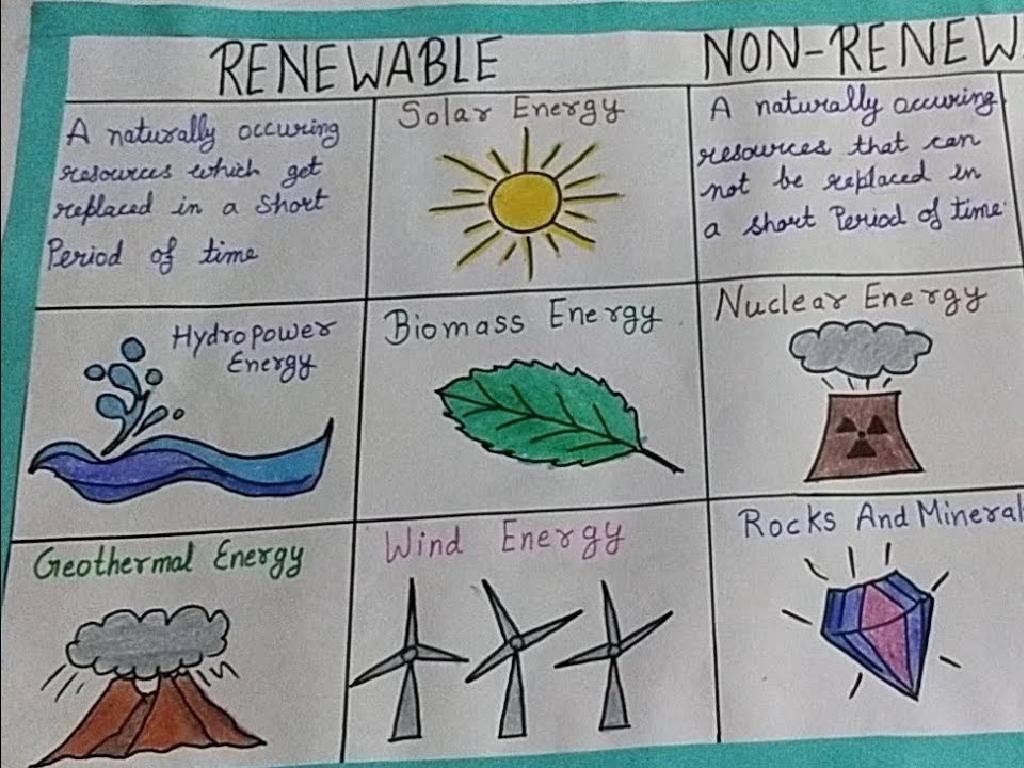 RENEWABLE
NON-RENEW
A naturally occuring
resources which get
replaced in a short
Period of time
Solar Energy
A naturally occuring
resources that can
not be replaced in
a short Period of time.
Hydropower
Energy
Biomass Energy
Nuclear Energy
Geothermal Energy
Wind Energy
Rocks And Mineral